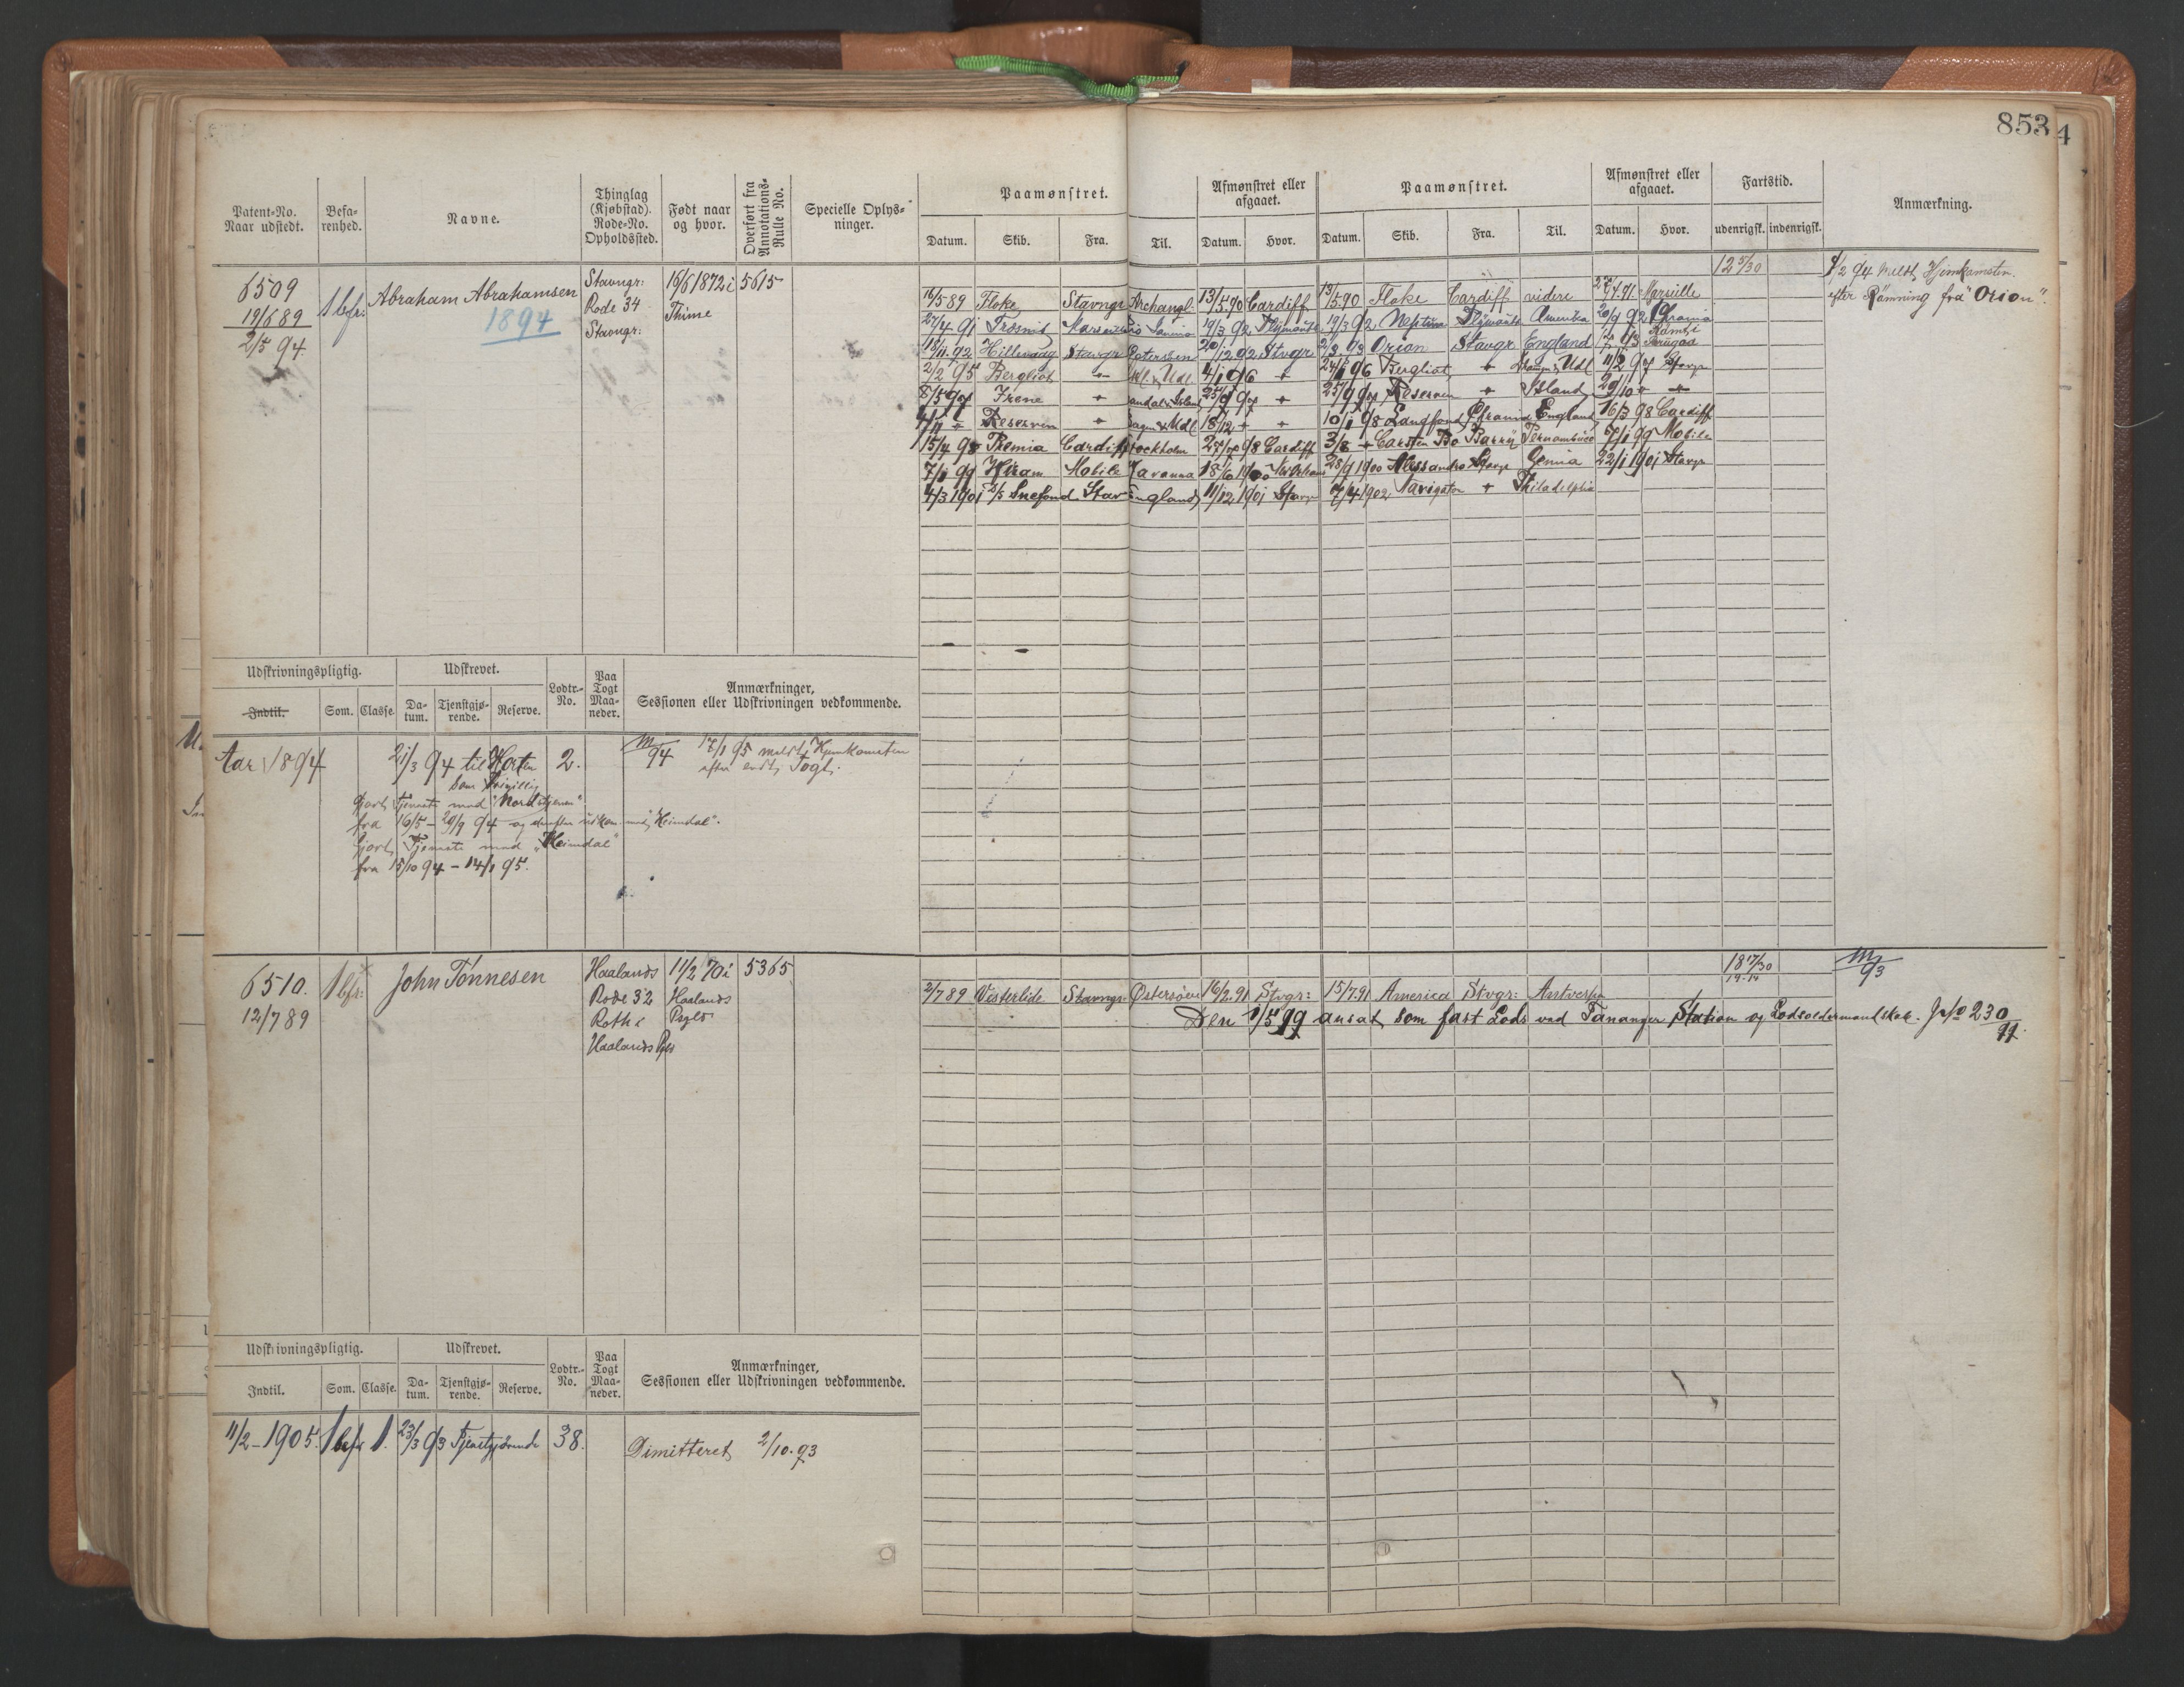 853
4
Patent-No. Naar udstedt.
Befarenhed.
Navne.
Thinglag (Kjøbstad). Rode-No. Opholdssted.
Født naar og hvor.
Overført fra Annotations-Rulle No.
Specielle Oplysninger.
Paamønstret.
Afmønstret eller afgaaet.
Paamønstret.
Afmønstret eller afgaaet.
Fartstid.
Anmærkning.
Datum. Skib. Fra. Til. Datum. Hvor. Datum. Skib. Fra. Til. Datum. Hvor. udenrigsk. indenrigsk.
6509
19/6 89
2/5 94.
1 bfr:
Abraham Abrahamsen
1894
Stavngr:
Rode 34
Stavngr:
16/6 1872 i
Thime
5615
12 5/30
8/2 94 meldt Hjemkomsten
efter Rømning fra "Orion".
16/5 89 Floke Stavngr Archangel 13/5.90 Cardiff 13/5.90 Floke Cardiff videre 27/4.91. Marseille
27/4 91 Marseille 19/3 92 Plÿmouth 19/3 92 Neptun Plÿmouth Amerika
92 Hillevaag Stavgr 20/12.92 Stvgr Orion Stavgr England
2/2 95 Bergliot " Udl 4/1 96 " 24/1 96 Bergliot " Udl 11/2 97 Stavgr
8/5 97 Irene " Island 97 " 25/9 97 Reserven " Island 29/10 " "
Reserven " Udl 18/12 " " 10/1 98 England 16/3 98 Cardiff
15/4 98 Cardiff Stockholm 98 Cardiff 3/8 " Carsten Bo Barrÿ Pernambuco 7/1 99 Mobile
7/1 99 Hiram Mobile Havanna 18/6 1900 28/9 1900 Alessandro Stavgr 22/1 1901 Stavgr
4/3 1901 Snefond Stav England 11/12 1901 Stavgr 7/4 1902 Navigator " Philadelphia
Udskrivningspligtig.
Udskrevet.
Lodtr.-No.
Paa Togt Maaneder.
Anmærkninger, Sessionen eller Udskrivningen vedkommende.
Indtil. Som. Classe. Datum. Tjenstgjørende. Reserve.
Aar 1894
21/3 94 til Horten
som frivillig
2.
M/94
17/1 95 meldt Hjemkomsten
efter endt Togt.
Gjort Tjeneste med "Nordstjernen"
fra 16/5 - 29/9 94 og derefter med "Heimdal".
Gjort Tjeneste med "Heimdal"
fra 15/10 94 - 14/1 95.
6510.
12/7 89
1 bfr:
John Tönnesen
Haalands
Rode 32
Roth i
Haalands Pgld
11/2 70 i
Haalands
Pgld:
5365
18 17/30
19-14
M/93
2/7 89 Vesterlide Stavngr: Østersøen 16/2.91 Stvgr: 15/7.91 America Stvgr: Antverpen
Den 1/5 99 ansat som fast Lods ved Tananger Station og Lodsoldermandskab. J No 230/99.
Udskrivningspligtig.
Udskrevet.
Lodtr.-No.
Paa Togt Maaneder.
Anmærkninger, Sessionen eller Udskrivningen vedkommende.
Indtil. Som. Classe. Datum. Tjenstgjørende. Reserve.
11/2 - 1905. 1 bfr 1. 23/3 93 Tjenstgjörende 38.
Dimitteret 2/10.93